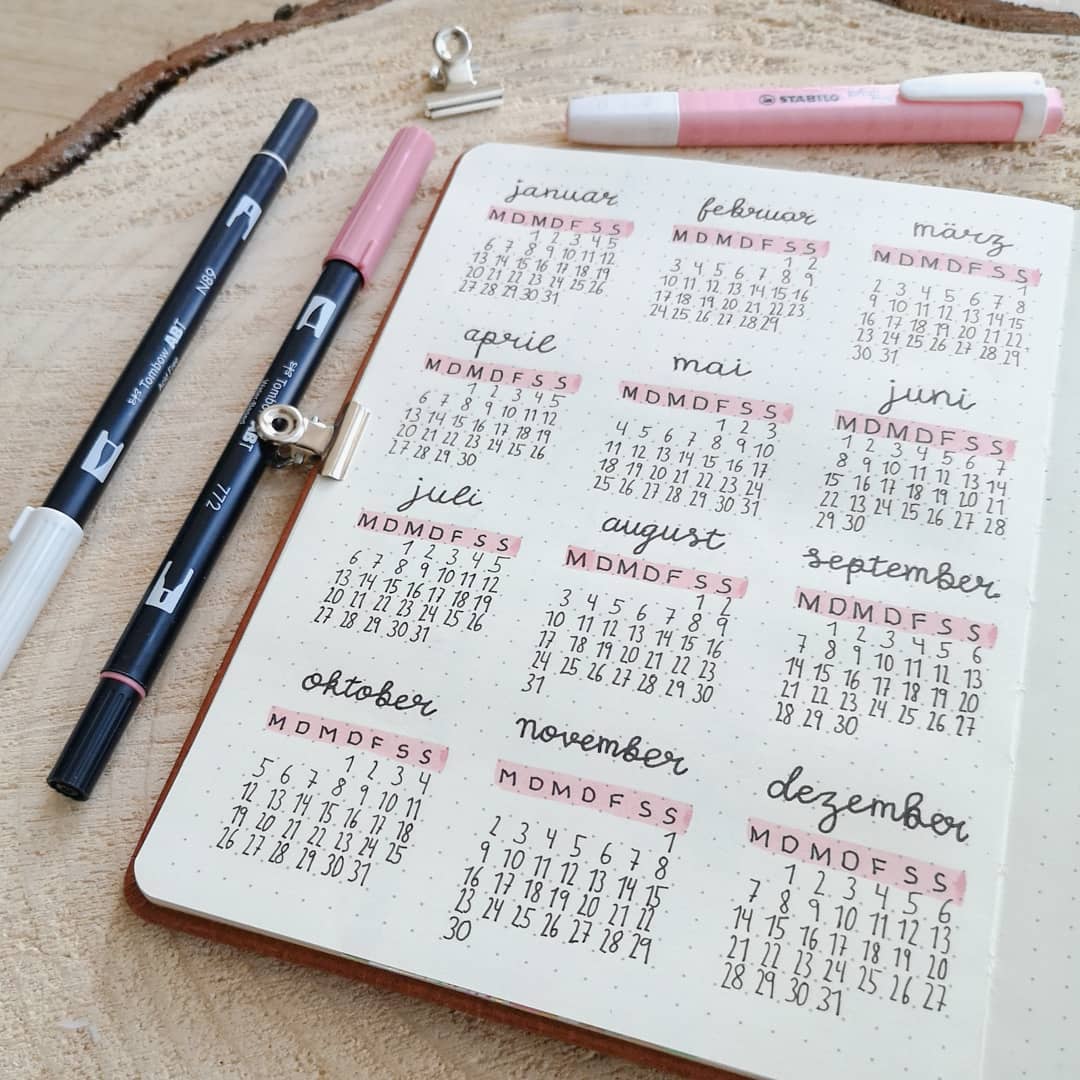 STABILO
N89
Tombow ABT
772
Tombow ABT
januar
M D M D F S S
1 2 3 4 5
6 7 8 9 10 11 12
13 14 15 16 17 18 19
20 21 22 23 24 25 26
27 28 29 30 31
februar
M D M D F S S
1 2
3 4 5 6 7 8 9
10 11 12 13 14 15 16
17 18 19 20 21 22 23
24 25 26 27 28 29
märz
M D M D F S S
1
2 3 4 5 6 7 8
9 10 11 12 13 14 15
16 17 18 19 20 21 22
23 24 25 26 27 28 29
30 31
april
M D M D F S S
1 2 3 4 5
6 7 8 9 10 11 12
13 14 15 16 17 18 19
20 21 22 23 24 25 26
27 28 29 30
mai
M D M D F S S
1 2 3
4 5 6 7 8 9 10
11 12 13 14 15 16 17
18 19 20 21 22 23 24
25 26 27 28 29 30 31
juni
M D M D F S S
1 2 3 4 5 6 7
8 9 10 11 12 13 14
15 16 17 18 19 20 21
22 23 24 25 26 27 28
29 30
juli
M D M D F S S
1 2 3 4 5
6 7 8 9 10 11 12
13 14 15 16 17 18 19
20 21 22 23 24 25 26
27 28 29 30 31
august
M D M D F S S
1 2
3 4 5 6 7 8 9
10 11 12 13 14 15 16
17 18 19 20 21 22 23
24 25 26 27 28 29 30
31
september
M D M D F S S
1 2 3 4 5 6
7 8 9 10 11 12 13
14 15 16 17 18 19 20
21 22 23 24 25 26 27
28 29 30
oktober
M D M D F S S
1 2 3 4
5 6 7 8 9 10 11
12 13 14 15 16 17 18
19 20 21 22 23 24 25
26 27 28 29 30 31
november
M D M D F S S
1
2 3 4 5 6 7 8
9 10 11 12 13 14 15
16 17 18 19 20 21 22
23 24 25 26 27 28 29
30
dezember
M D M D F S S
1 2 3 4 5 6
7 8 9 10 11 12 13
14 15 16 17 18 19 20
21 22 23 24 25 26 27
28 29 30 31